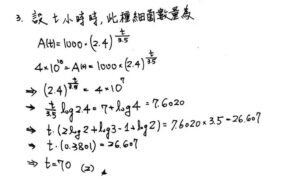 3. 設 t 小時時, 此種細菌數量為
A(t)=1000·(2.4)^{t/3.5}
4×10^{10}=A(t)=1000×(2.4)^{t/3.5}
⇒ (2.4)^{t/3.5} = 4×10^7
⇒ t/3.5 log2.4 = 7+log4 = 7.6020
⇒ t·(2log2+log3-1+log2) = 7.6020×3.5=26.607
⇒ t·(0.3801)=26.607
⇒ t=70 (2)